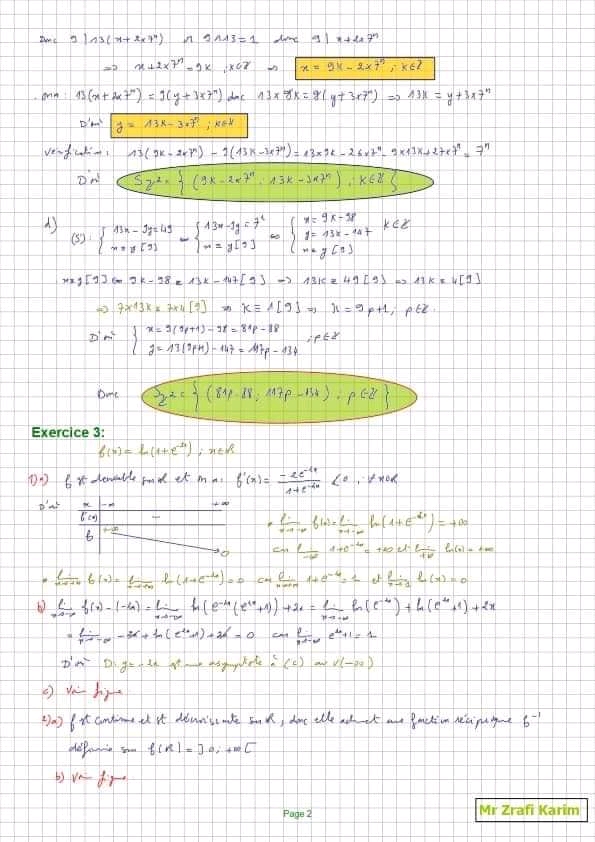 Donc 9 | 13(x+2x7ⁿ) or 9∧13=1 donc 9 | x+2x7ⁿ
⇒ x+2x7ⁿ=9k ; k∈ℤ ⇒ x = 9k-2x7ⁿ ; k∈ℤ
: 13(x+2x7ⁿ) = 9(y+3x7ⁿ) donc 13x9k=9(y+3x7ⁿ) ⇒ 13k = y+3x7ⁿ
D'où y = 13k-3x7ⁿ ; k∈ℤ
Vérification : 13(9k-2x7ⁿ) - 9(13k-3x7ⁿ)=13x9k-26x7ⁿ-9x13k+27x7ⁿ= 7ⁿ
D'où Sℤ²= { (9k-2x7ⁿ ; 13k-3x7ⁿ) ; k∈ℤ }
d) (S) : { 13x-9y=49 ; x≡y[9] ⇔ { 13x-9y=7² ; x≡y[9] ⇔ { x=9k-98 ; y=13k-147 ; x≡y[9] k∈ℤ
x≡y[9] ⇔ 9k-98≡13k-147[9] ⇒ 13k≡49[9] ⇒ 13k≡4[9]
⇒ 7x13k≡7x4[9] ⇒ k≡1[9] ⇒ k=9p+1 ; p∈ℤ.
D'où { x=9(9p+1)-98=81p-89
y=13(9p+1)-147=117p-134 ; p∈ℤ
Donc Sℤ²= { (81p-89 ; 117p-134) ; p∈ℤ }
Exercice 3:
f(x)=ln(1+e⁻²ˣ) ; x∈ℝ
1)a) f est dérivable sur ℝ et on a : f'(x)= -2e⁻²ˣ/(1+e⁻²ˣ) <0 ; ∀x∈ℝ
D'où
x -∞ +∞
f'(x) -
f +∞ 0
• lim x→-∞ f(x)=lim x→-∞ ln(1+e⁻²ˣ)=+∞
car lim x→-∞ 1+e⁻²ˣ=+∞ et lim +∞ ln(x)=+∞
• lim x→+∞ f(x)=lim x→+∞ ln(1+e⁻²ˣ)=0 car lim x→+∞ 1+e⁻²ˣ=1 et lim x→1 ln(x)=0
b) lim x→-∞ f(x)-(-2x)=lim x→-∞ ln(e⁻²ˣ(e²ˣ+1))+2x=lim x→-∞ ln(e⁻²ˣ)+ln(e²ˣ+1)+2x
=lim x→-∞ -2x+ln(e²ˣ+1)+2x=0 car lim x→-∞ e²ˣ+1=1
D'où D: y=-2x est une asymptote à (C) au V(-∞)
c) Voir figure
2)a) f est continue et st décroissante sur ℝ, donc elle admet une fonction réciproque f⁻¹
définie sur f(ℝ)=]0,+∞[
b) Voir figure
Page 2
Mr Zrafi Karim